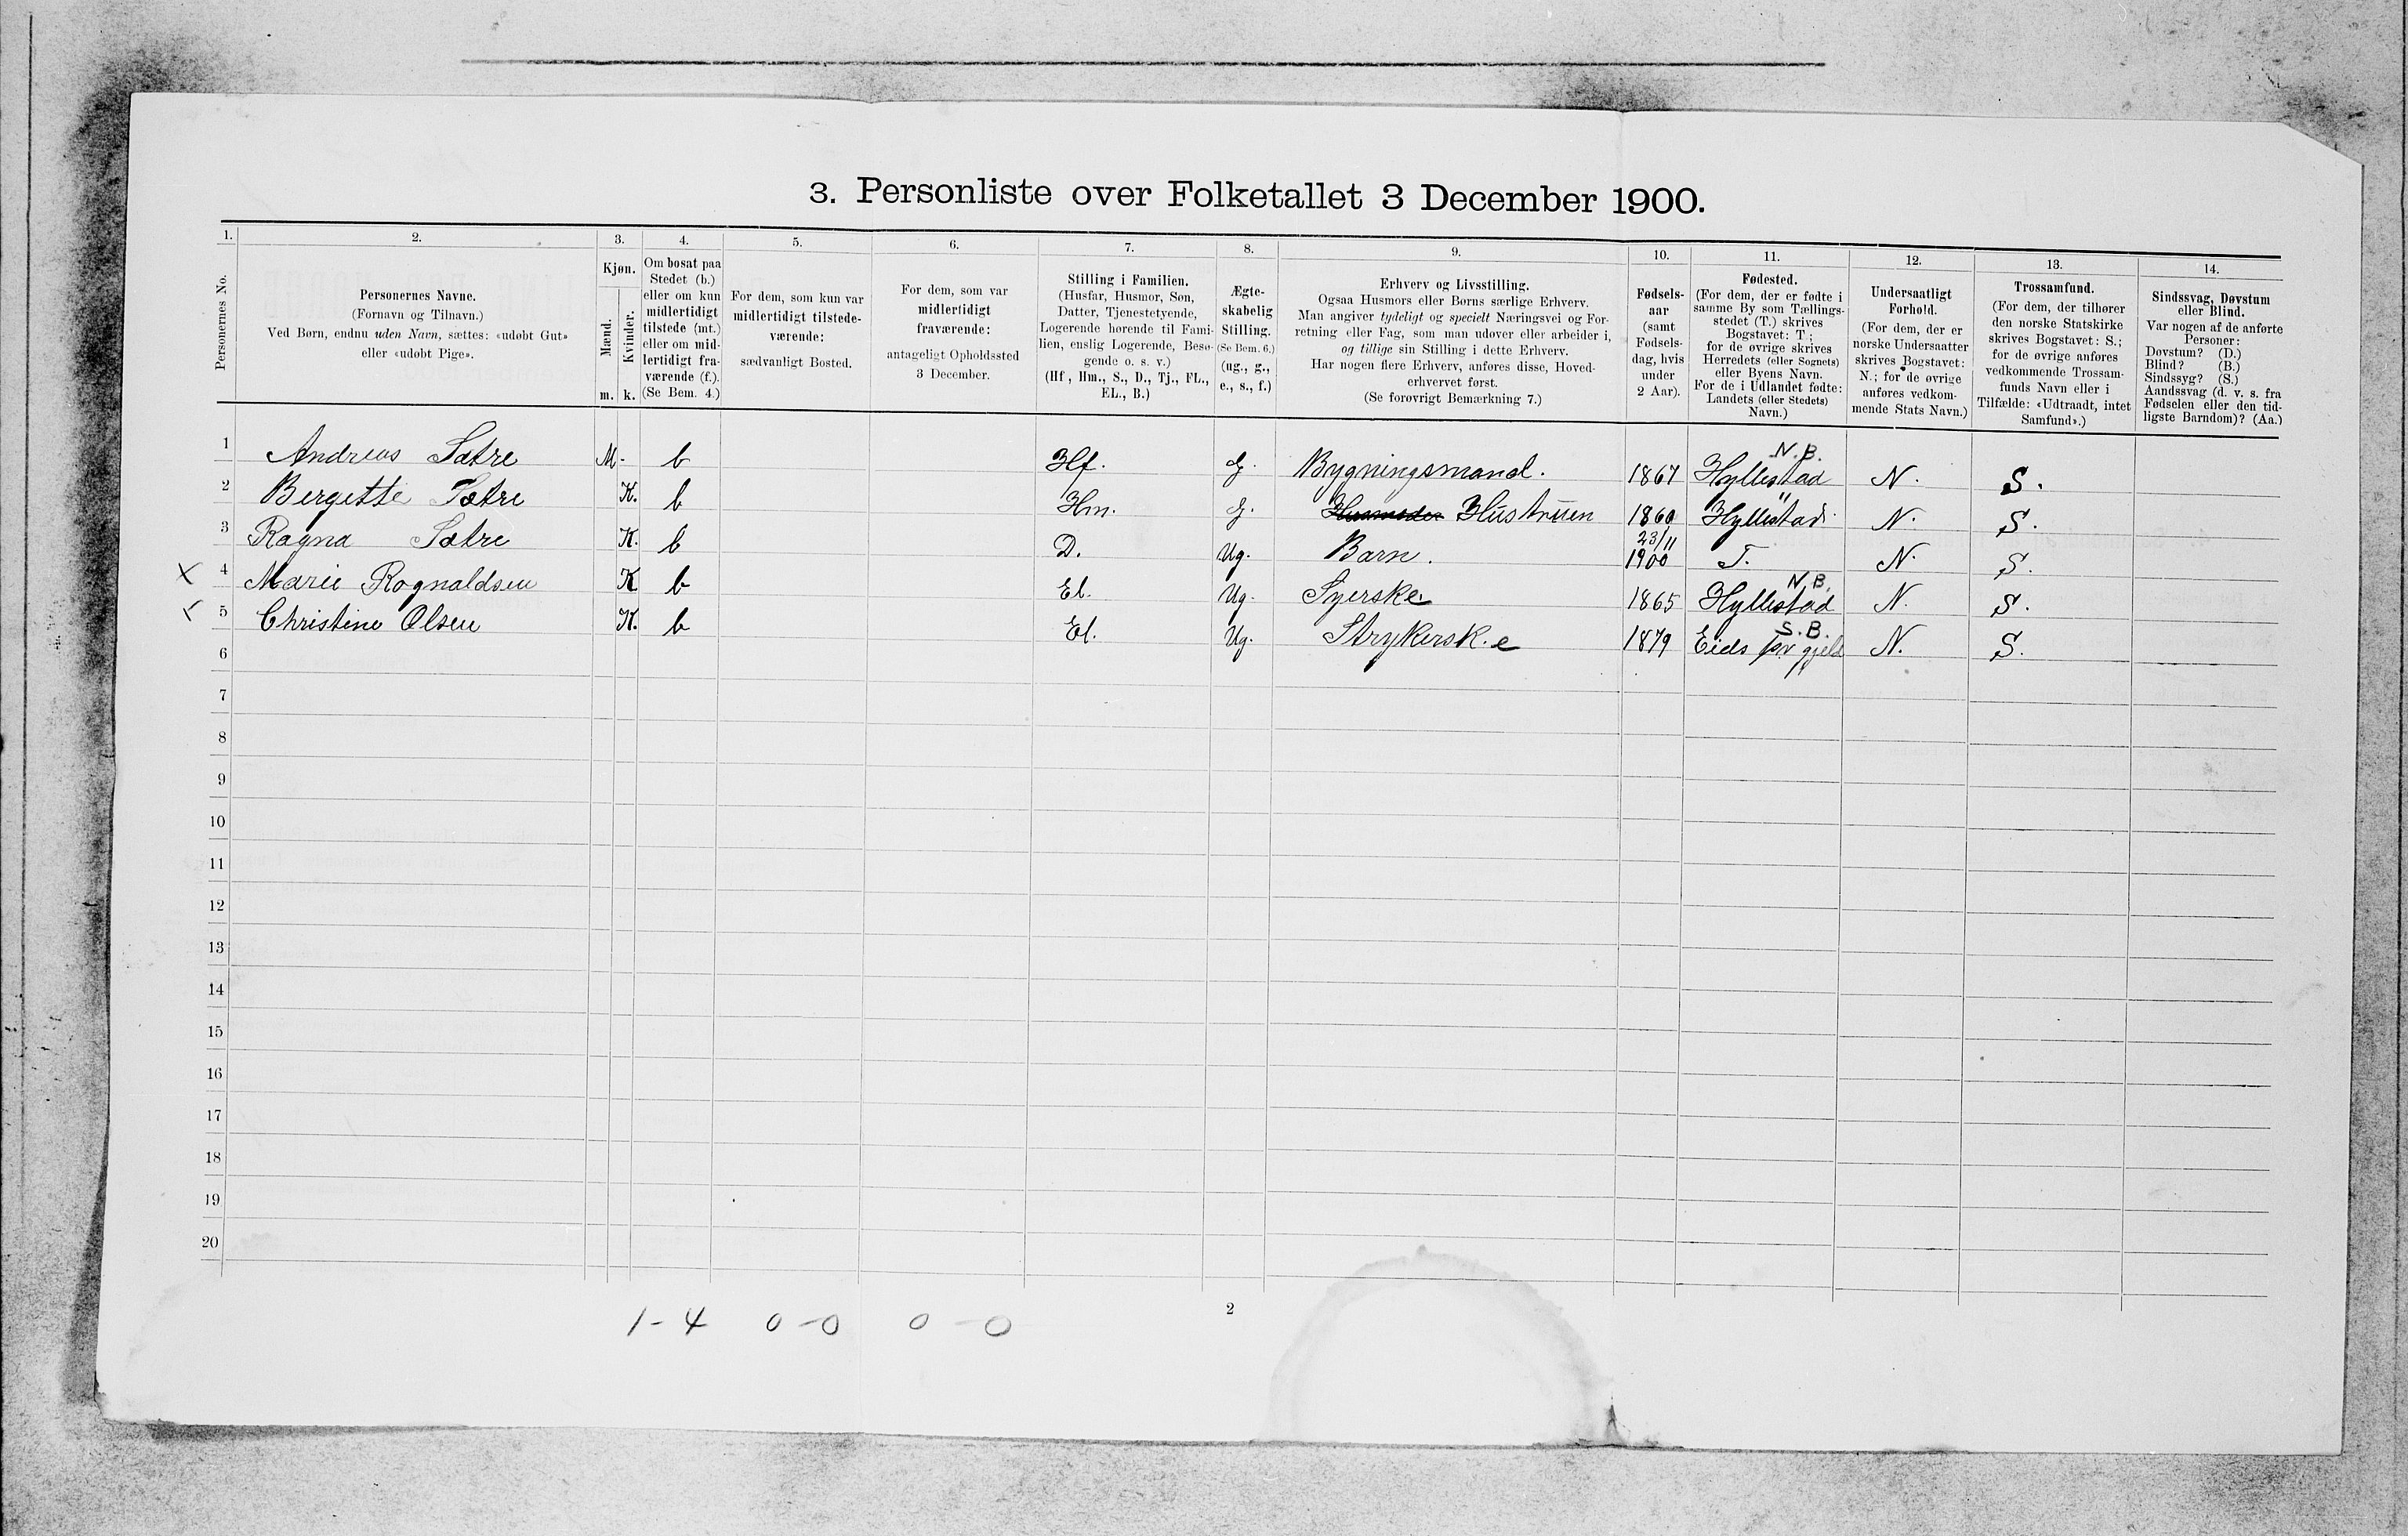 3. Personliste over Folketallet 3 December 1900.
1. 2. 3. 4. 5. 6. 7. 8. 9. 10. 11. 12. 13. 14.
Personernes No.
Personernes Navne.
(Fornavn og Tilnavn.)
Ved Børn, endnu uden Navn, sættes: «udøbt Gut»
eller «udøbt Pige».
Kjøn.
Mænd.
Kvinder.
m. k.
Om bosat paa
Stedet (b.)
eller om kun
midlertidigt
tilstede (mt.)
eller om mid-
lertidigt fra-
værende (f.).
(Se Bem. 4.)
For dem, som kun var
midlertidigt tilstede-
værende:
sædvanligt Bosted.
For dem, som var
midlertidigt
fraværende:
antageligt Opholdssted
3 December.
Stilling i Familien.
(Husfar, Husmor, Søn,
Datter, Tjenestetyende,
Logerende hørende til Fami-
lien, enslig Logerende, Besø-
gende o. s. v.)
(Hf, Hm., S., D., Tj., FL.,
EL., B.)
Ægte-
skabelig
Stilling.
(Se Bem. 6.)
(ug., g.,
e., s., f.)
Erhverv og Livsstilling.
Ogsaa Husmors eller Børns særlige Erhverv.
Man angiver tydeligt og specielt Næringsvei og For-
retning eller Fag, som man udøver eller arbeider i,
og tillige sin Stilling i dette Erhverv.
Har nogen flere Erhverv, anføres disse, Hoved-
erhvervet først.
(Se forøvrigt Bemærkning 7.)
Fødsels-
aar
(samt
Fødsels-
dag, hvis
under
2 Aar).
Fødested.
(For dem, der er fødte i
samme By som Tællings-
stedet (T.) skrives
Bogstavet: T;
for de øvrige skrives
Herredets (eller Sognets)
eller Byens Navn.
For de i Udlandet fødte:
Landets (eller Stedets)
Navn.)
Undersaatligt
Forhold.
(For dem, der er
norske Undersaatter
skrives Bogstavet:
N.; for de øvrige
anføres vedkom-
mende Stats Navn.)
Trossamfund.
(For dem, der tilhører
den norske Statskirke
skrives Bogstavet: S.;
for de øvrige anføres
vedkommende Trossam-
funds Navn eller i
Tilfælde: «Udtraadt, intet
Samfund».)
Sindssvag, Døvstum
eller Blind.
Var nogen af de anførte
Personer:
Døvstum? (D.)
Blind? (B.)
Sindssyg? (S.)
Aandssvag (d. v. s. fra
Fødselen eller den tid-
ligste Barndom)? (Aa.)
1 Andreas Sætre M. b Hf. g. Bygningsmand. 1867 N.B. Hyllestad N. S.
2 Bergitte Sætre K. b Hm. g. Husmoder Hustruen 1860 " Hyllestad N. S.
3 Ragna Sætre K. b D. Ug. Barn. 23/11 1900 T. N. S.
X 4 Marie Rognaldsen K b El. Ug. Syerske 1865 N.B. Hyllestad N. S.
X 5 Christine Olsen K. b El. Ug. Strykersk.e 1879 S.B. Eids pr gjeld N. S.
6
7
8
9
10
11
12
13
14
15
16
17
18
19
20
2
1-4 0-0 0-0